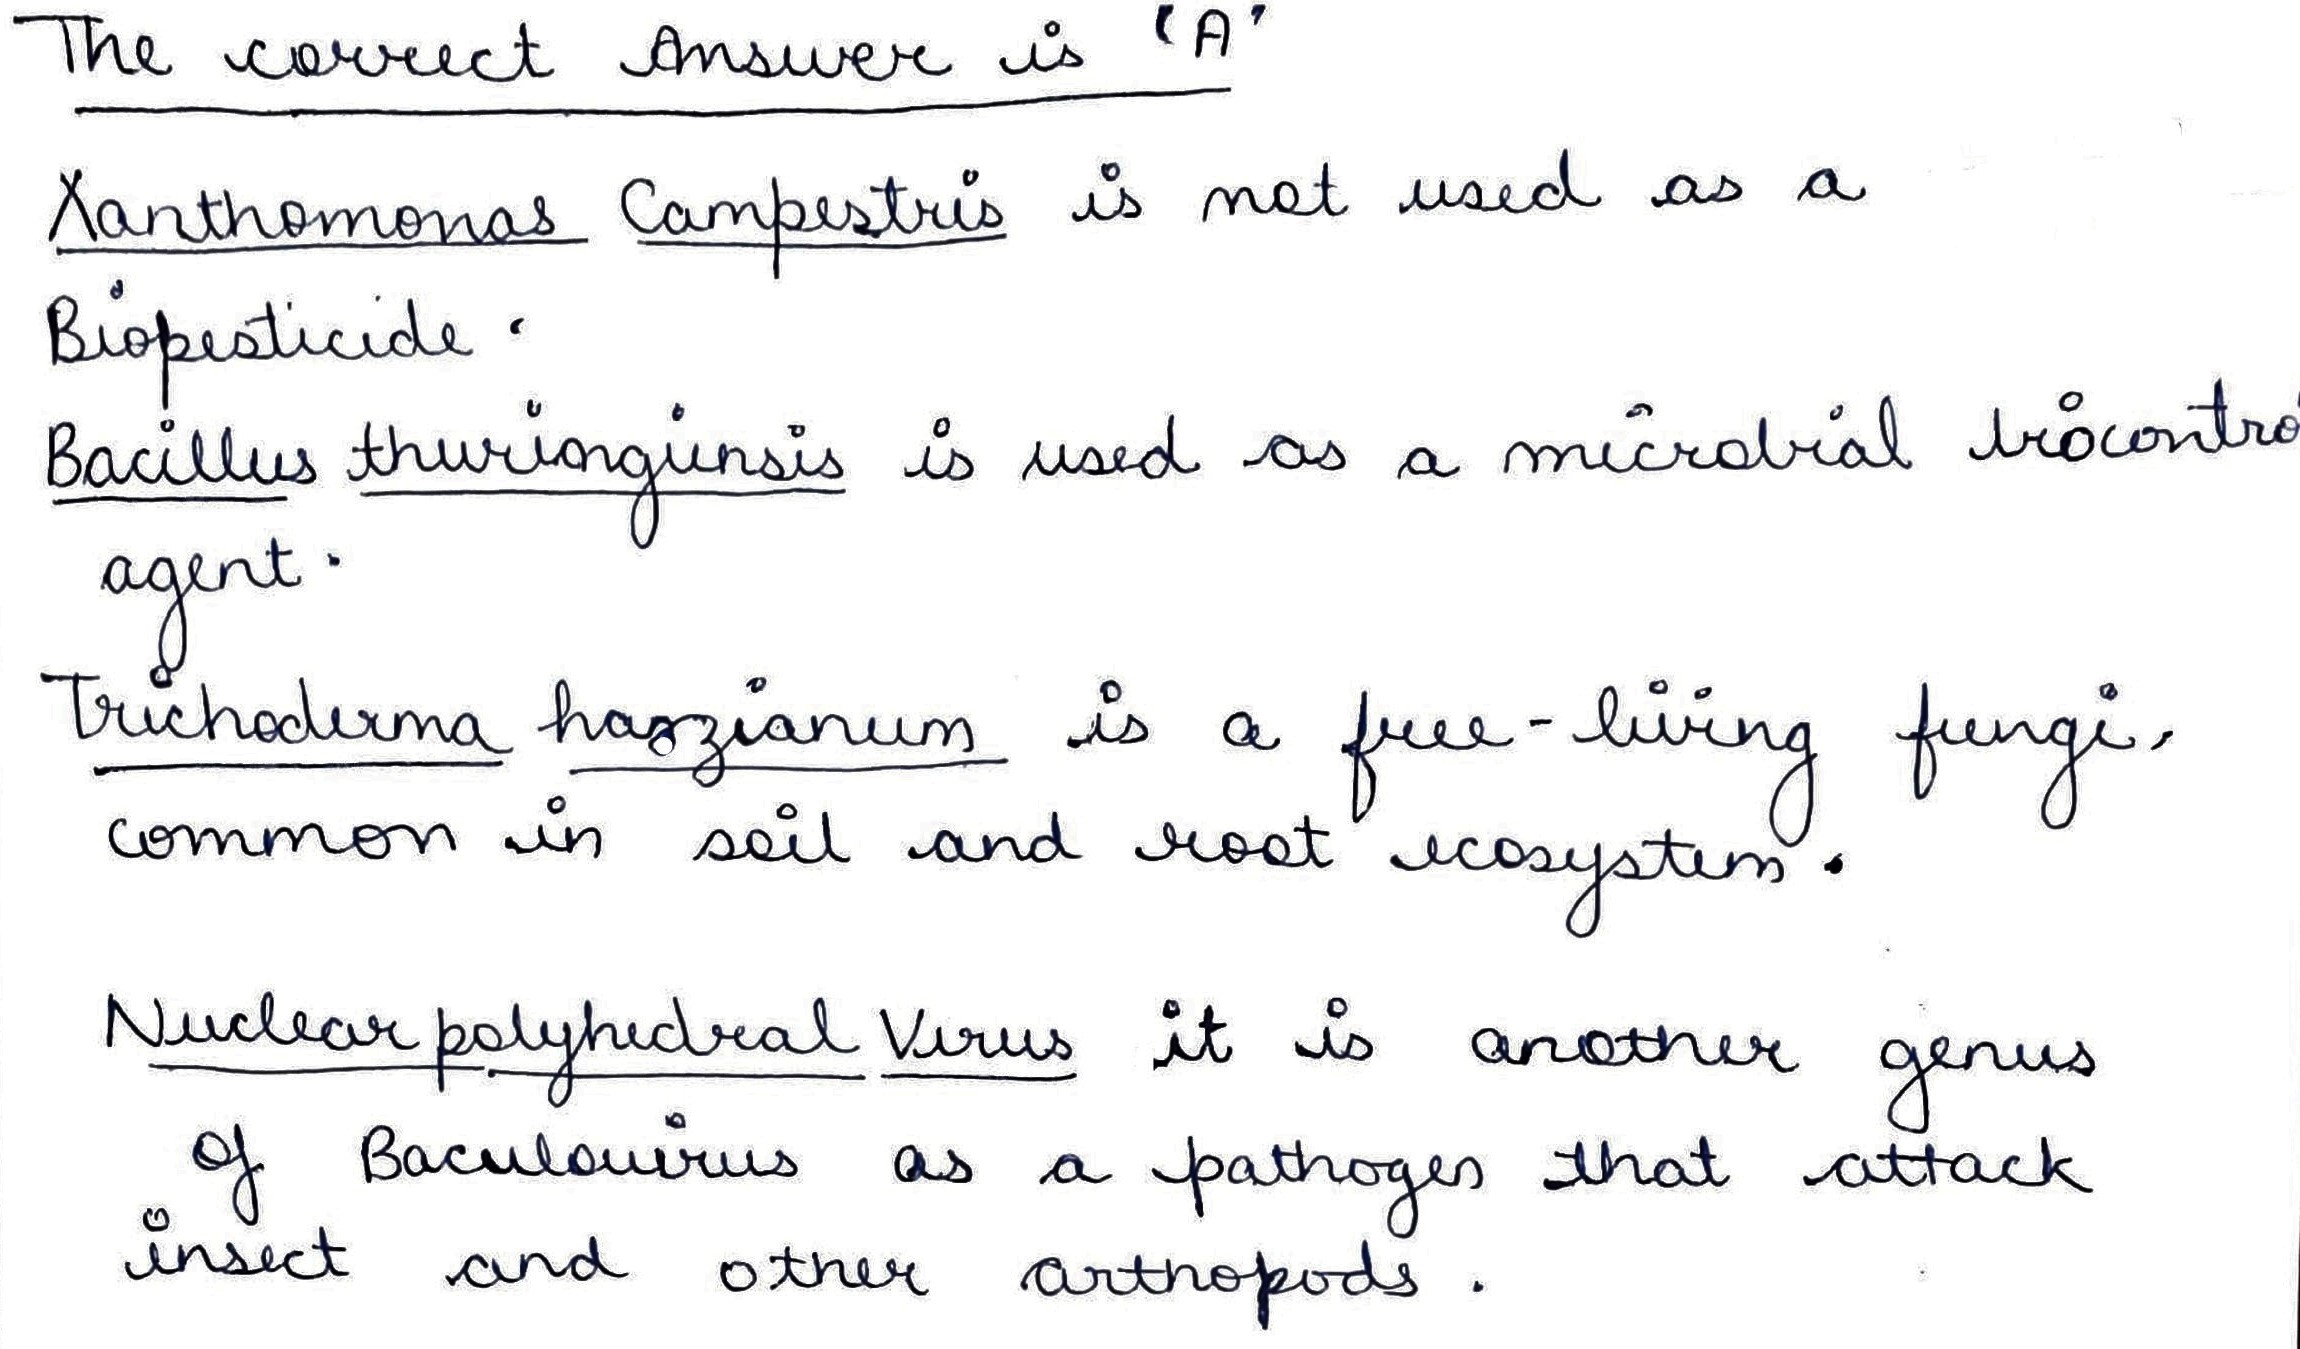 The correct Answer is 'A'
Xanthomonas Campestris is not used as a
Biopesticide.
Bacillus thuringiensis is used as a microbial biocontro
agent.
Trichoderma harzianum is a free-living fungi,
common in soil and root ecosystem.
Nuclear polyhedral Virus it is another genus
of Baculovirus as a pathogen that attack
insect and other arthopods.